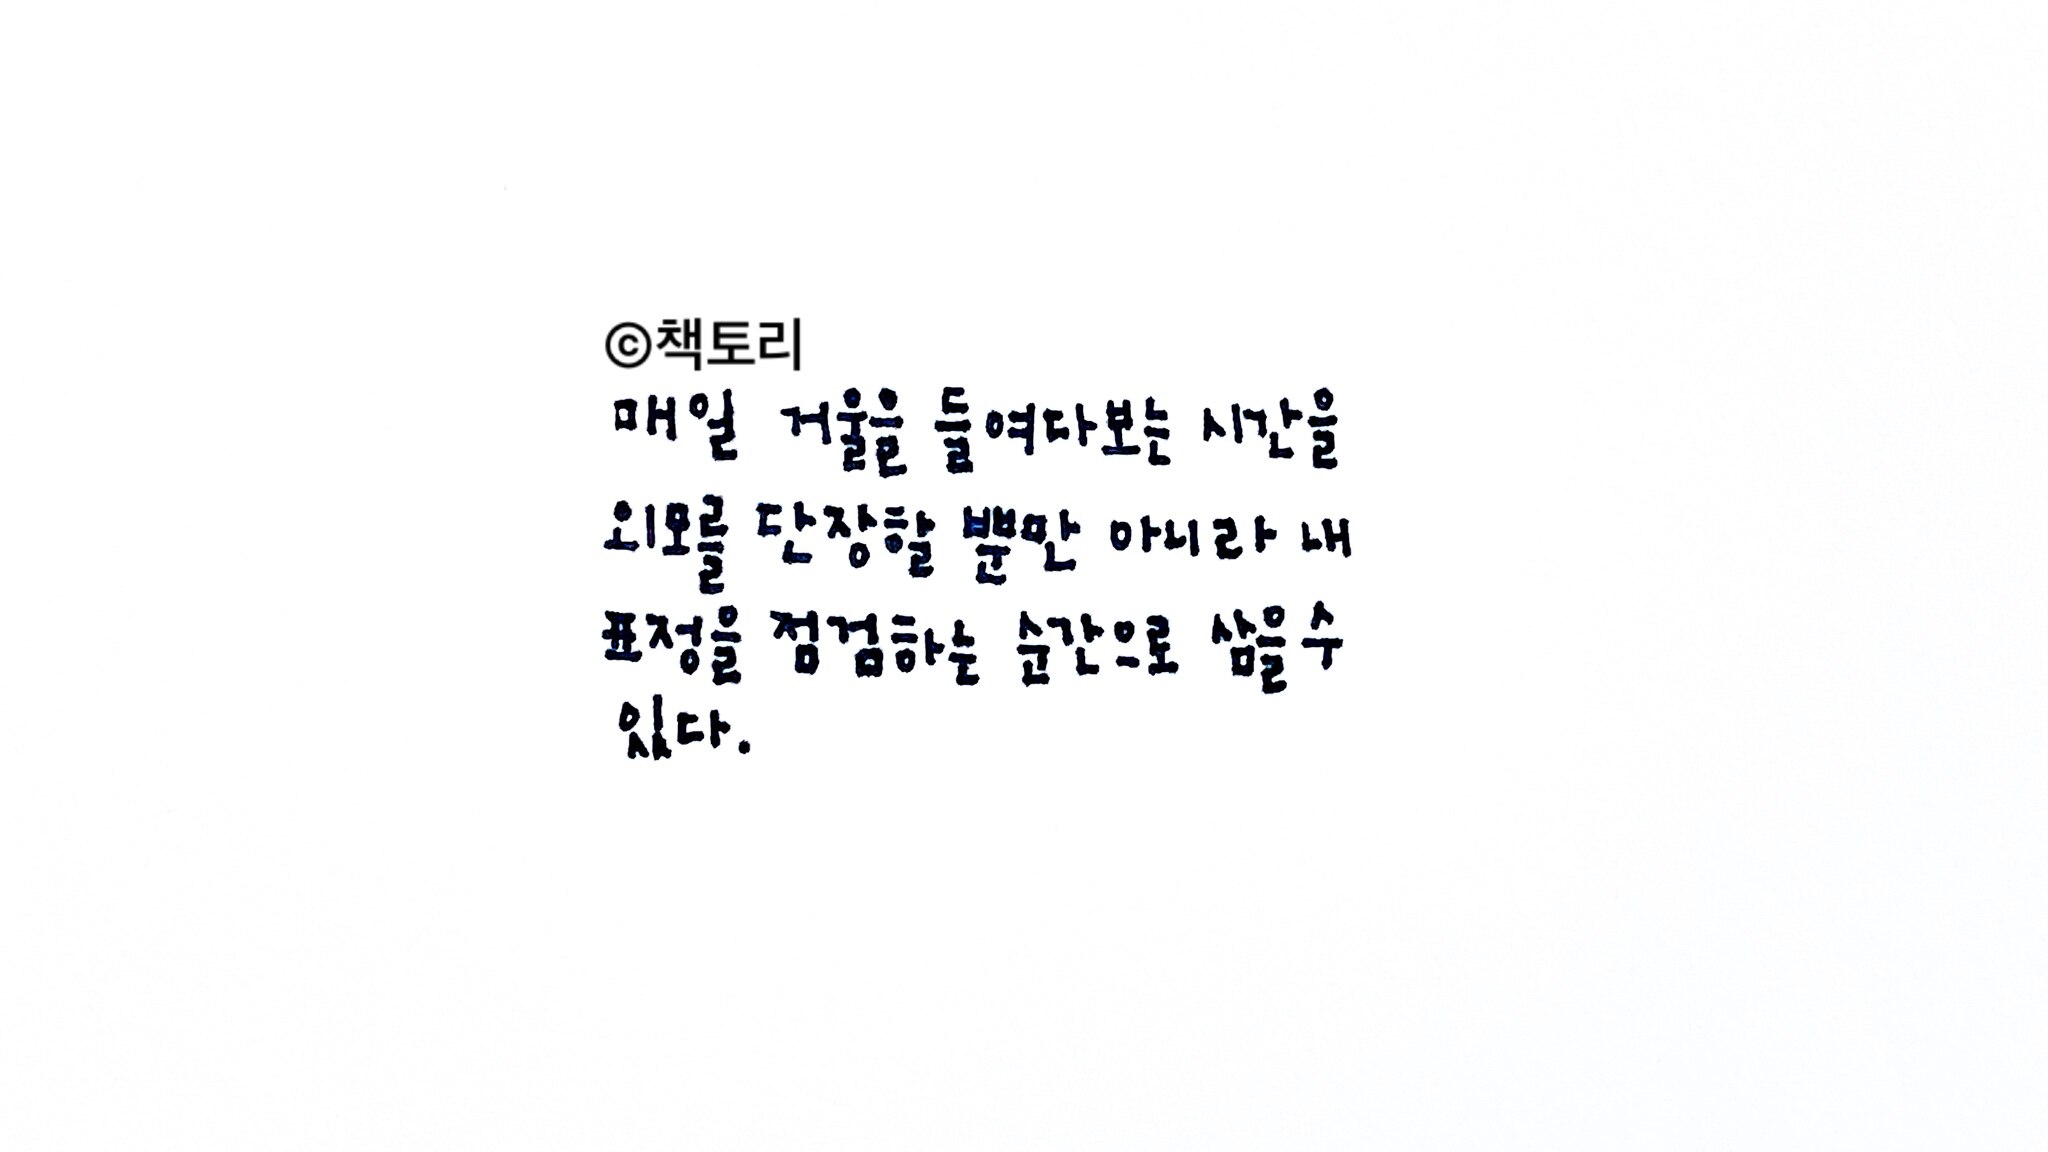 ©책토리
매일 거울을 들여다보는 시간을
외모를 단장할 뿐만 아니라 내
표정을 점검하는 순간으로 삼을 수
있다.